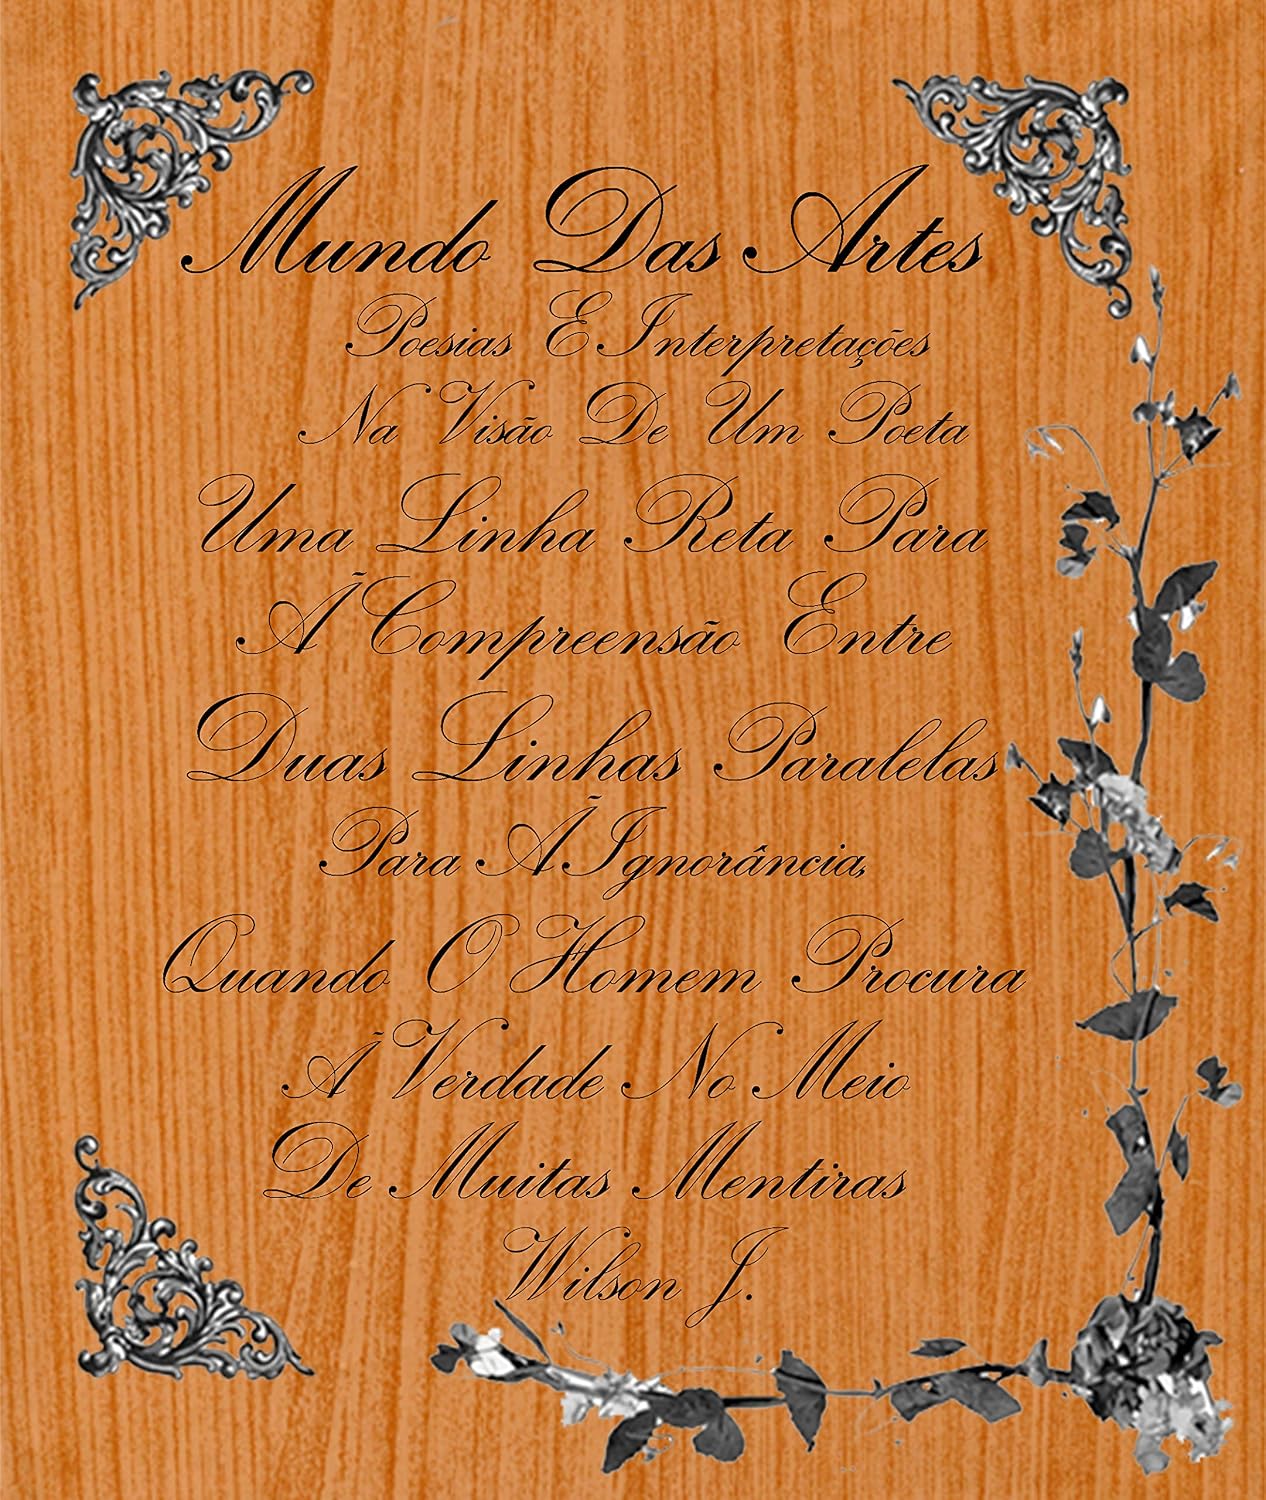 Mundo Das Artes
Poesias E Interpretações
Na Visão De Um Poeta
Uma Linha Reta Para
Ã Compreensão Entre
Duas Linhas Paralelas
Para Ã Ignorância,
Quando O Homem Procura
Ã Verdade No Meio
De Muitas Mentiras
Wilson J.